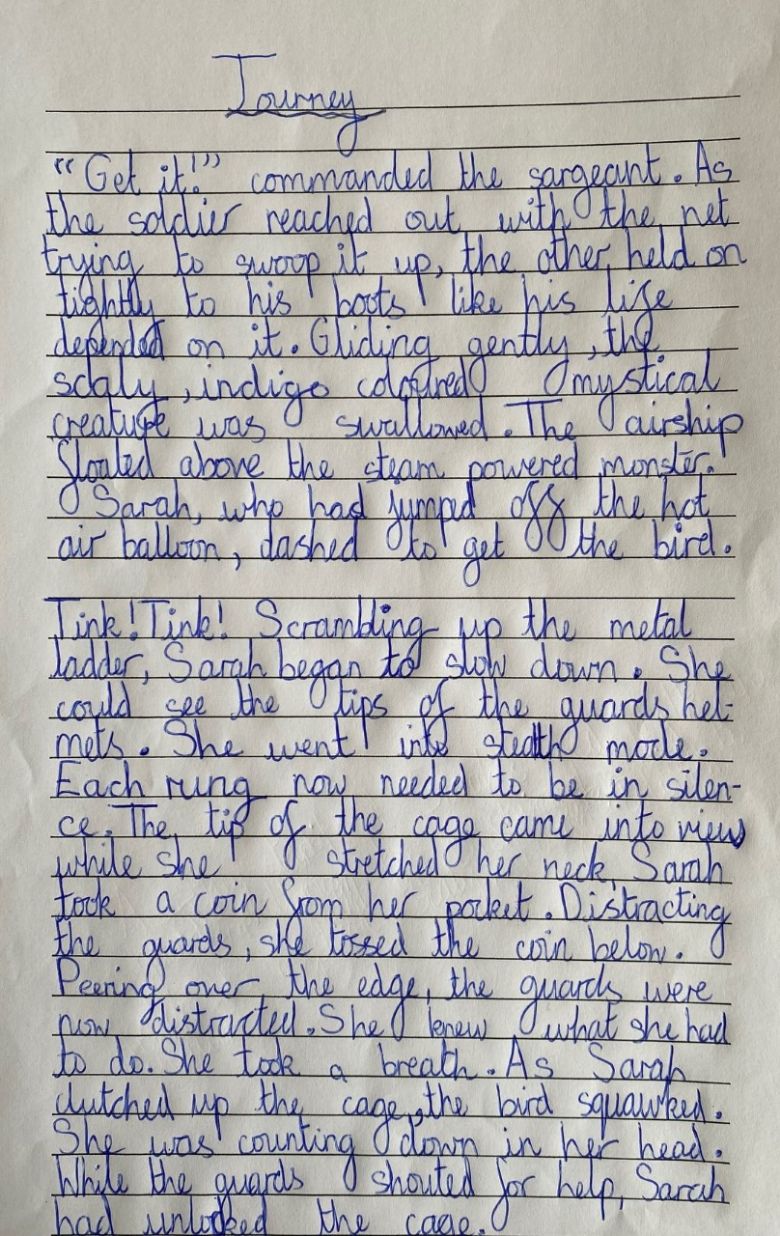 Journey
“Get it!” commanded the sargeant. As
the soldier reached out with the net
trying to swoop it up, the other held on
tightly to his boots like his life
depended on it. Gliding gently, the
scaly, indigo coloured mystical
creature was swallowed. The airship
floated above the steam powered monster.
Sarah, who had jumped off the hot
air balloon, dashed to get the bird.
Tink! Tink! Scrambling up the metal
ladder, Sarah began to slow down. She
could see the tips of the guards hel-
mets. She went into stealth mode.
Each rung now needed to be in silen-
ce. The tip of the cage came into view
while she stretched her neck, Sarah
took a coin from her pocket. Distracting
the guards, she tossed the coin below.
Peering over the edge, the guards were
now distracted. She knew what she had
to do. She took a breath. As Sarah
clutched up the cage, the bird squawked.
She was counting down in her head.
While the guards shouted for help, Sarah
had unlocked the cage.